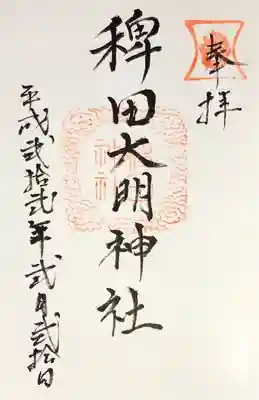 奉拝
稗田大明神社
平成弐拾弐年弐月弐拾日